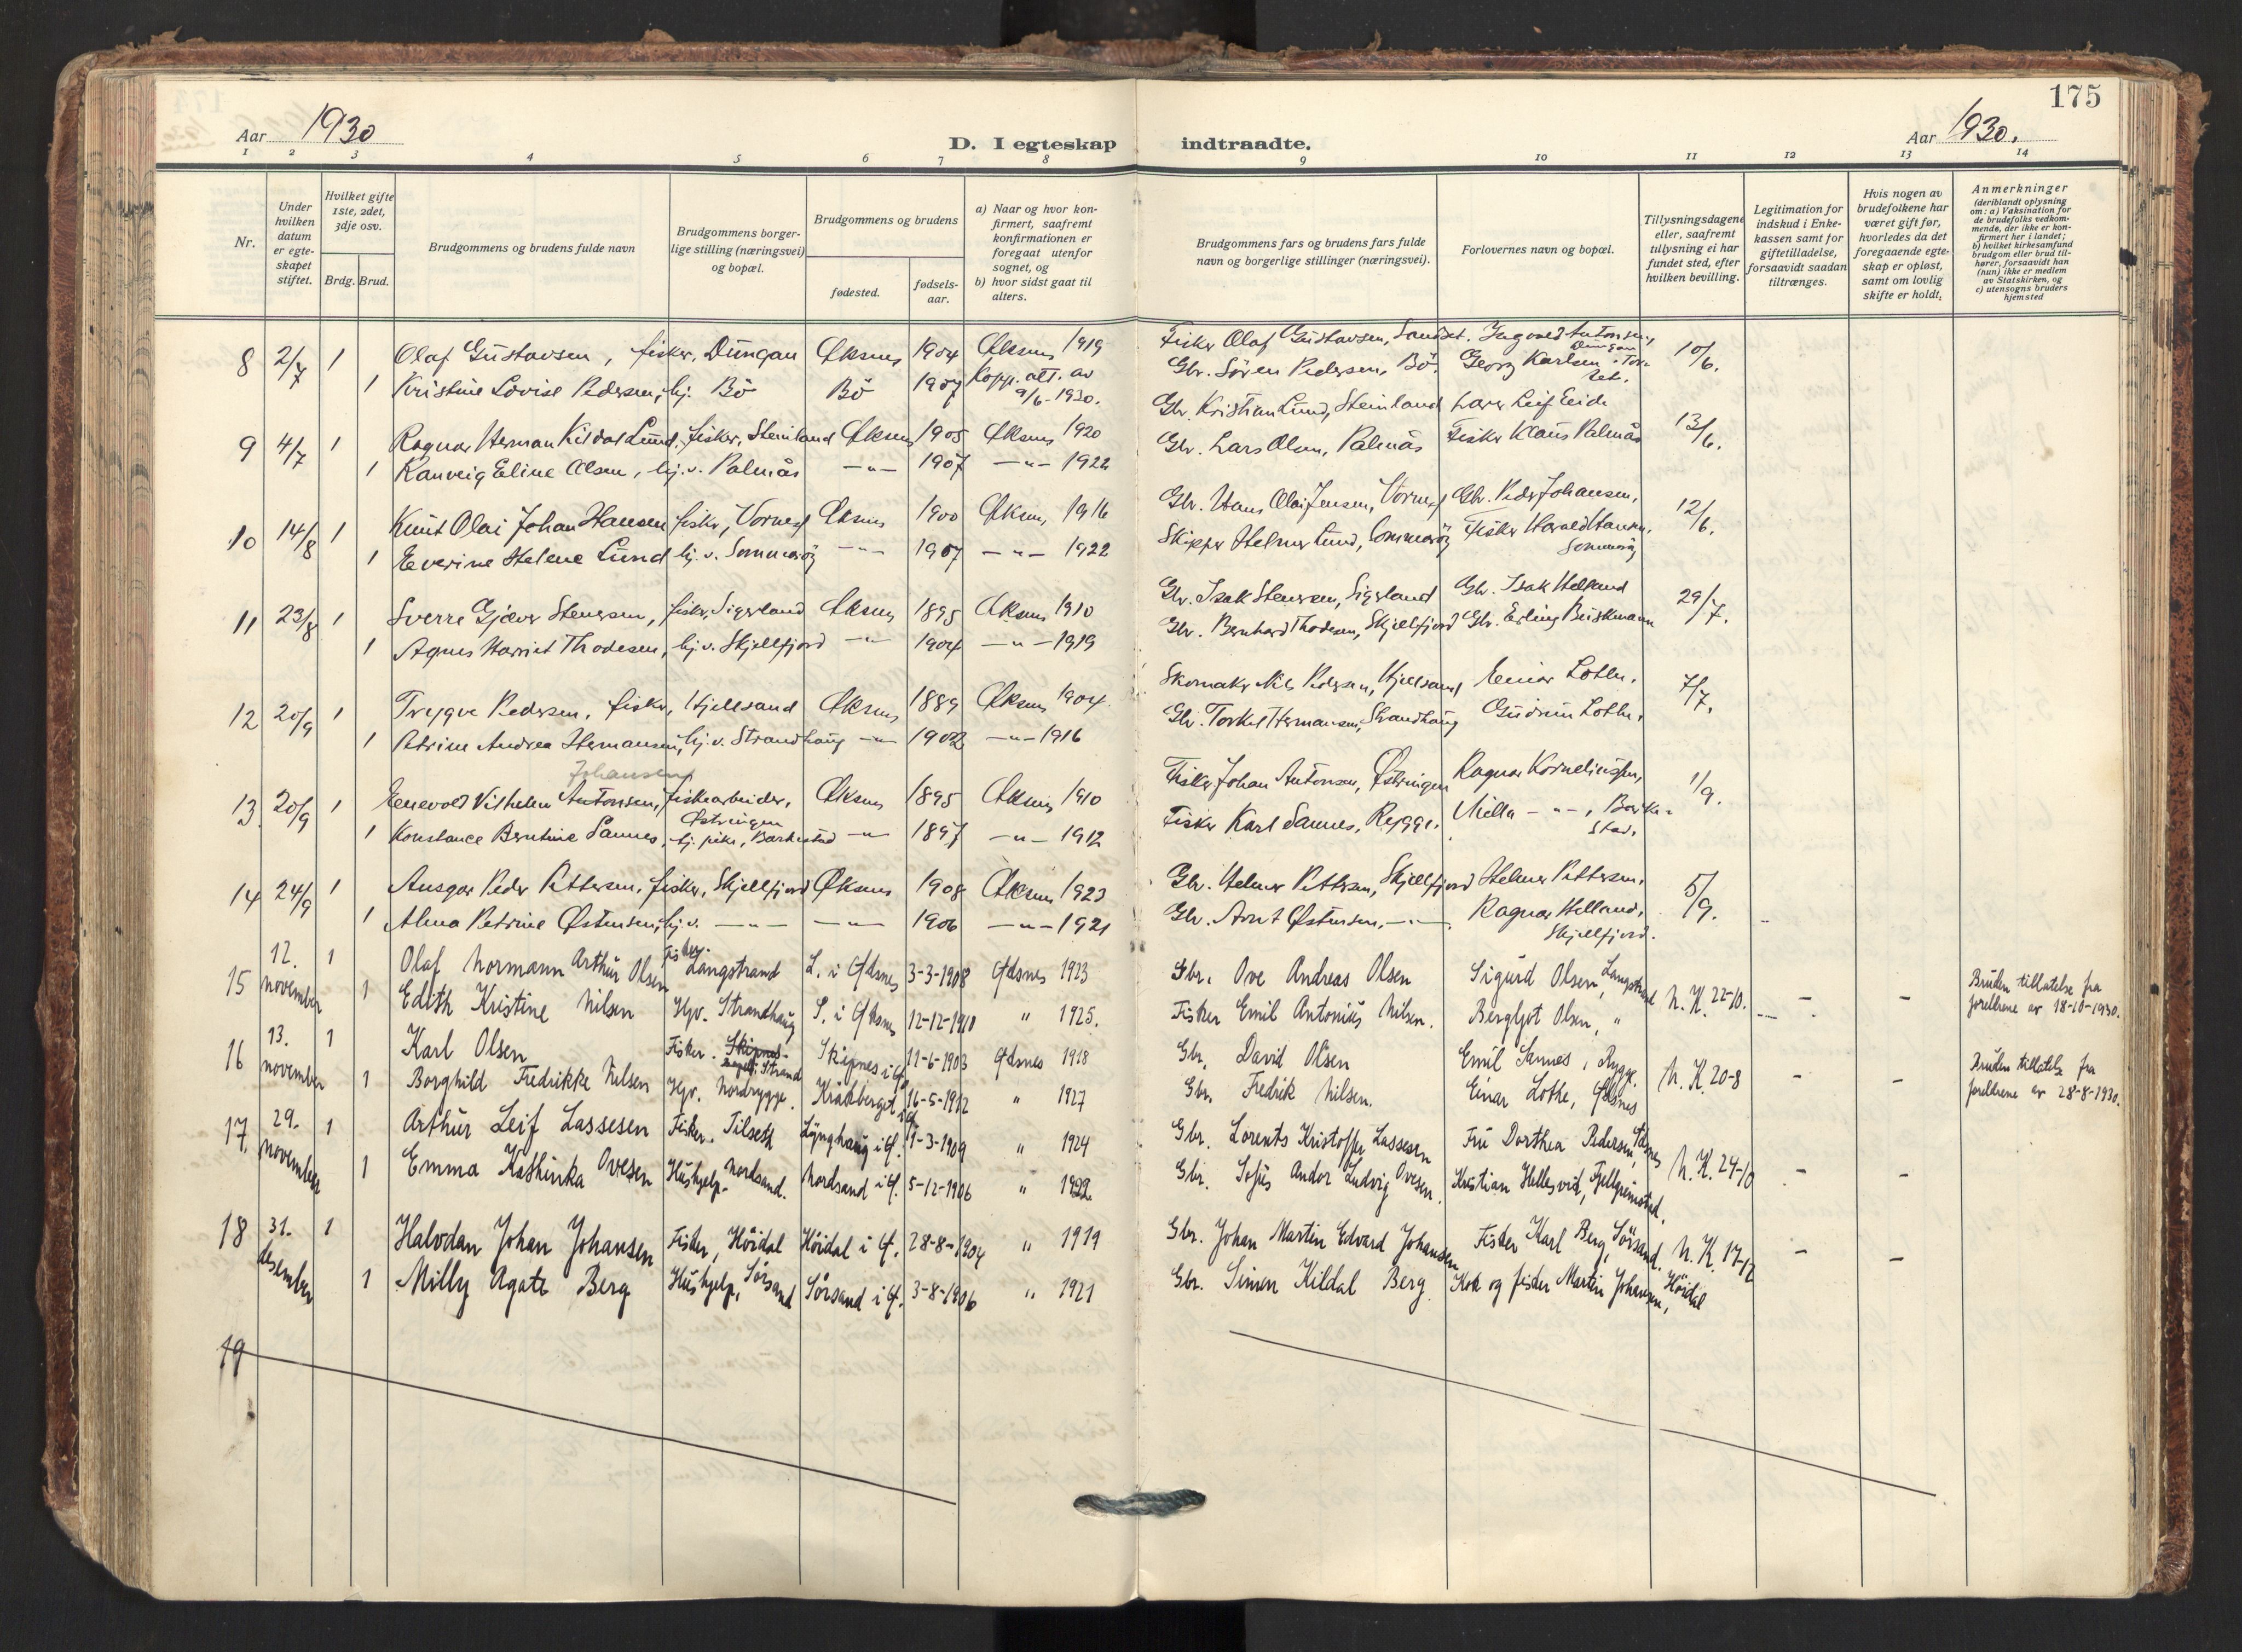 175
Aar 1930
D. I egteskap indtraadte.
Aar 1930.
1 2 3 4 5 6 7 8 9 10 11 12 13 14
Nr.
Under hvilken datum er egte-skapet stiftet.
Hvilket gifte 1ste, 2det, 3dje osv.
Brdg. Brud.
Brudgommens og brudens fulde navn
Brudgommens borger-lige stilling (næringsvei) og bopæl.
Brudgommens og brudens
fødested.
fødsels-aar.
a) Naar og hvor kon-firmert, saafremt konfirmationen er foregaat utenfor sognet, og
b) hvor sidst gaat til alters.
Brudgommens fars og brudens fars fulde navn og borgerlige stillinger (næringsvei).
Forlovernes navn og bopæl.
Tillysningsdagene eller, saafremt tillysning ei har fundet sted, efter hvilken bevilling.
Legitimation for indskud i Enke-kassen samt for giftetilladelse, forsaavidt saadan tiltrænges.
Hvis nogen av brudefolkene har været gift før, hvorledes da det foregaaende egte-skap er opløst, samt om lovlig skifte er holdt.
Anmerkninger (deriblandt oplysning om: a) Vaksination for de brudefolks vedkom-mende, der ikke er kon-firmert her i landet; b) hvilket kirkesamfund brudgom eller brud til-hører, forsaavidt han (hun) ikke er medlem av Statskirken, og c) utensogns bruders hjemsted
8 2/7 1 Olaf Gustavsen, fisker, Dungan Øksnes 1904 Øksnes 1919 Fisker Olaf Gustavsen, Sandset. Ingvald Antonsen, Dungan 10/6.
1 Kristine Lovise Pedersen, hj. Bö Bö 1907 Kopp. att. av 9/6-1930. Gbr. Sören Pedersen, Bö. Georg Karlsen
9 4/7 1 Ragnar Herman Kildal Lund, fisker, Steinland Øksnes 1905 Øksnes 1920 Gbr. Kristian Lund, Steinland Lærer Leif Eide 13/6.
1 Ranveig Eline Olsen, hj. v. Palmås -"- 1907 -"- 1922 Gbr. Lars Olsen, Palmås Fisker Klaus Palmås
10 14/8 1 Knut Olai Johan Hansen fisker, Vornes Øksnes 1900 Øksnes 1916 Gbr. Hans Olai Jensen, Vornes Gbr. Peder Johansen, 12/6.
1 Everine Helene Lund hj. v. Sommeröy -"- 1907 -"- 1922 Skipper Helmer Lund, Sommeröy Fisker Harald Hansen, Sommeröy
11 23/8 1 Sverre Gjæver Stenersen, fisker, Sigerland Øksnes 1895 Øksnes 1910 Gbr. Isak Stenersen, Sigerland Gbr. Isak Helland 29/7.
1 Agnes Harriet Thodesen, hj. v. Skjellfjord -"- 1904 -"- 1919 Gbr. Bernhard Thodesen, Skjellfjord Gbr. Erling Beiskmann
12 20/9 1 Trygve Pedersen, fisker, Hjellsand Øksnes 1889 Øksnes 1904. Skomaker Nils Pedersen, Hjellsand Einar Lothe. 7/7.
1 Petrine Andrea Hermansen, hj. v. Strandhaug -"- 1902 -"- 1916 Gbr. Torkel Hermansen, Strandhaug Gudrun Lothe.
Johansen
13. 20/9 1 Eenevold Vilhelm Antonsen, fiskearbeider, Östringen Øksnes 1895 Øksnes 1910 Fisker Johan Antonsen, Östringen Ragnar Korneliussen, 1/9.
1 Konstance Berntine Sannes, hj. pike, Barkestad -"- 1897 -"- 1912 Fisker Karl Sannes, Rygge. Milla -"-, Barkestad.
14 24/9 1 Ansgar Peder Pettersen, fisker, Skjellfjord Øksnes 1908 Øksnes 1923 Gbr. Helmer Pettersen, Skjellfjord Helmer Pettersen, 5/9.
1 Alma Petrine Østensen, hj. v. -"- -"- 1906 -"- 1921 Gbr. Arnt Østensen, -"-. Ragnar Helland, Skjellfjord.
15 12. november 1 Olaf Normann Arthur Olsen Fisker. Langstrand L. i Øksnes 3-3-1908 Øksnes 1923 Gbr. Ove Andreas Olsen Sigurd Olsen, Langstrand N. K. 22-10. - - Bruden tillatelse fra foreldrene av 18-10-1930.
1 Edith Kristine Nilsen Hgv. Strandhaug S. i Øksnes 12-12-1910 " 1925. Fisker Emil Antonius Nilsen. Bergljot Olsen, "
16 13. november 1 Karl Olsen Fisker. Skipnes- Strand Skipnes i Ø. 11-6-1903 Øksnes 1918 Gbr. David Olsen Emil Sannes, Rygge. N. K. 20-8 - - Bruden tillatelse fra foreldrene av 28-8-1930.
1 Borghild Fredrikke Nilsen Hgv. Nordrygge. Kråkberget i Ø. 16-5-1912 " 1927 Gbr. Fredrik Nilsen. Einar Lothe, Øksnes
17. 29. november 1 Arthur Leif Lassesen Fisker. Tilseth Lynghaug i Ø. 11-3-1909 " 1924 Gbr. Lorents Kristoffer Lassesen Fru Dorthea Pedersen, Øksnes N. K. 24-10 - -
1 Emma Kathinka Ovesen Hushjelp. Nordsand. Nordsand i Ø. 5-12-1906 " 1922. Gbr. Sofus Andor Ludvig Ovesen. Kristian Hellesvik,
18 31. desember 1 Halvdan Johan Johansen Fisker, Höidal Höidal i Ø. 28-8-1904 " 1919 Gbr. Johan Martin Edvard Johansen Fisker Karl Berg, Sörsand. N. K. 17-12 - -
1 Milly Agate Berg Hushjelp, Sörsand Sörsand i Ø. 3-8-1906 " 1921 Gbr. Simon Kildal Berg. Kok og fisker Martin Johansen, Höidal
19